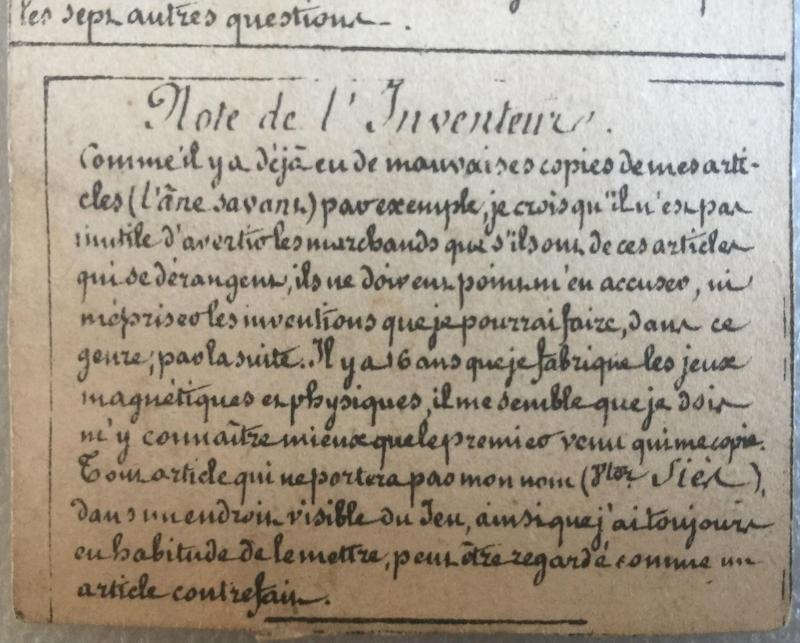 les sept autres questions.
Note de l'Inventeur.
Comme il y a déjà eu de mauvaises copies de mes arti-
cles (l'âne savant) par exemple, je crois qu'il n'est pas
inutile d'avertir les marchands que s'ils ont de ces articles
qui se dérangent, ils ne doivent point m'en accuser, ni
mépriser les inventions que je pourrai faire, dans ce
genre, par la suite. Il y a 16 ans que je fabrique les jeux
magnétiques et physiques, il me semble que je dois
m'y connaître mieux que le premier venu qui me copie.
Tout article qui ne portera pas mon nom (
dans un endroit visible du Jeu, ainsi que j'ai toujours
eu habitude de le mettre, peut être regardé comme un
article contrefait.